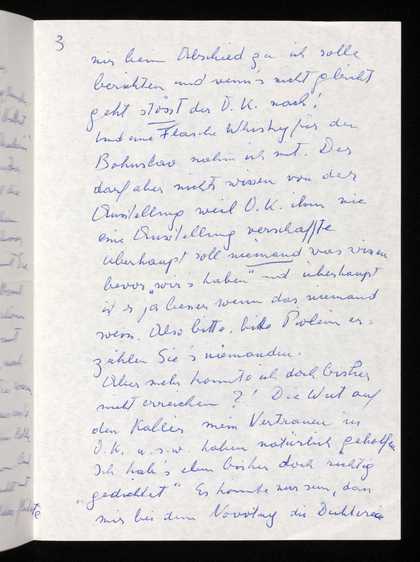 3
mir beim Abschied zu ich solle
berichten und wenn's nicht gleich
geht stösst der O.K. nach!
Und eine Flasche Whisky für den
Bohuslav nahm ich mit. Der
darf aber nichts wissen von der
Ausstellung weil O.K. ihm nie
eine Ausstellung verschaffte
überhaupt soll niemand was wissen
bevor „wir's haben" und überhaupt
ist es ja besser wenn das niemand
weiss. Also bitte, bitte er-
zählen Sie's niemandem.
Aber mehr konnte ich doch bisher
nicht erreichen?! Die Wut auf
den Kallir mein Vertrauen in
O.K. u.s.w. haben natürlich geholfen
Ich hab's eben bisher doch richtig
„gedichtet" Es konnte nur sein, dass
mir bei dem Novotny die Dichterei